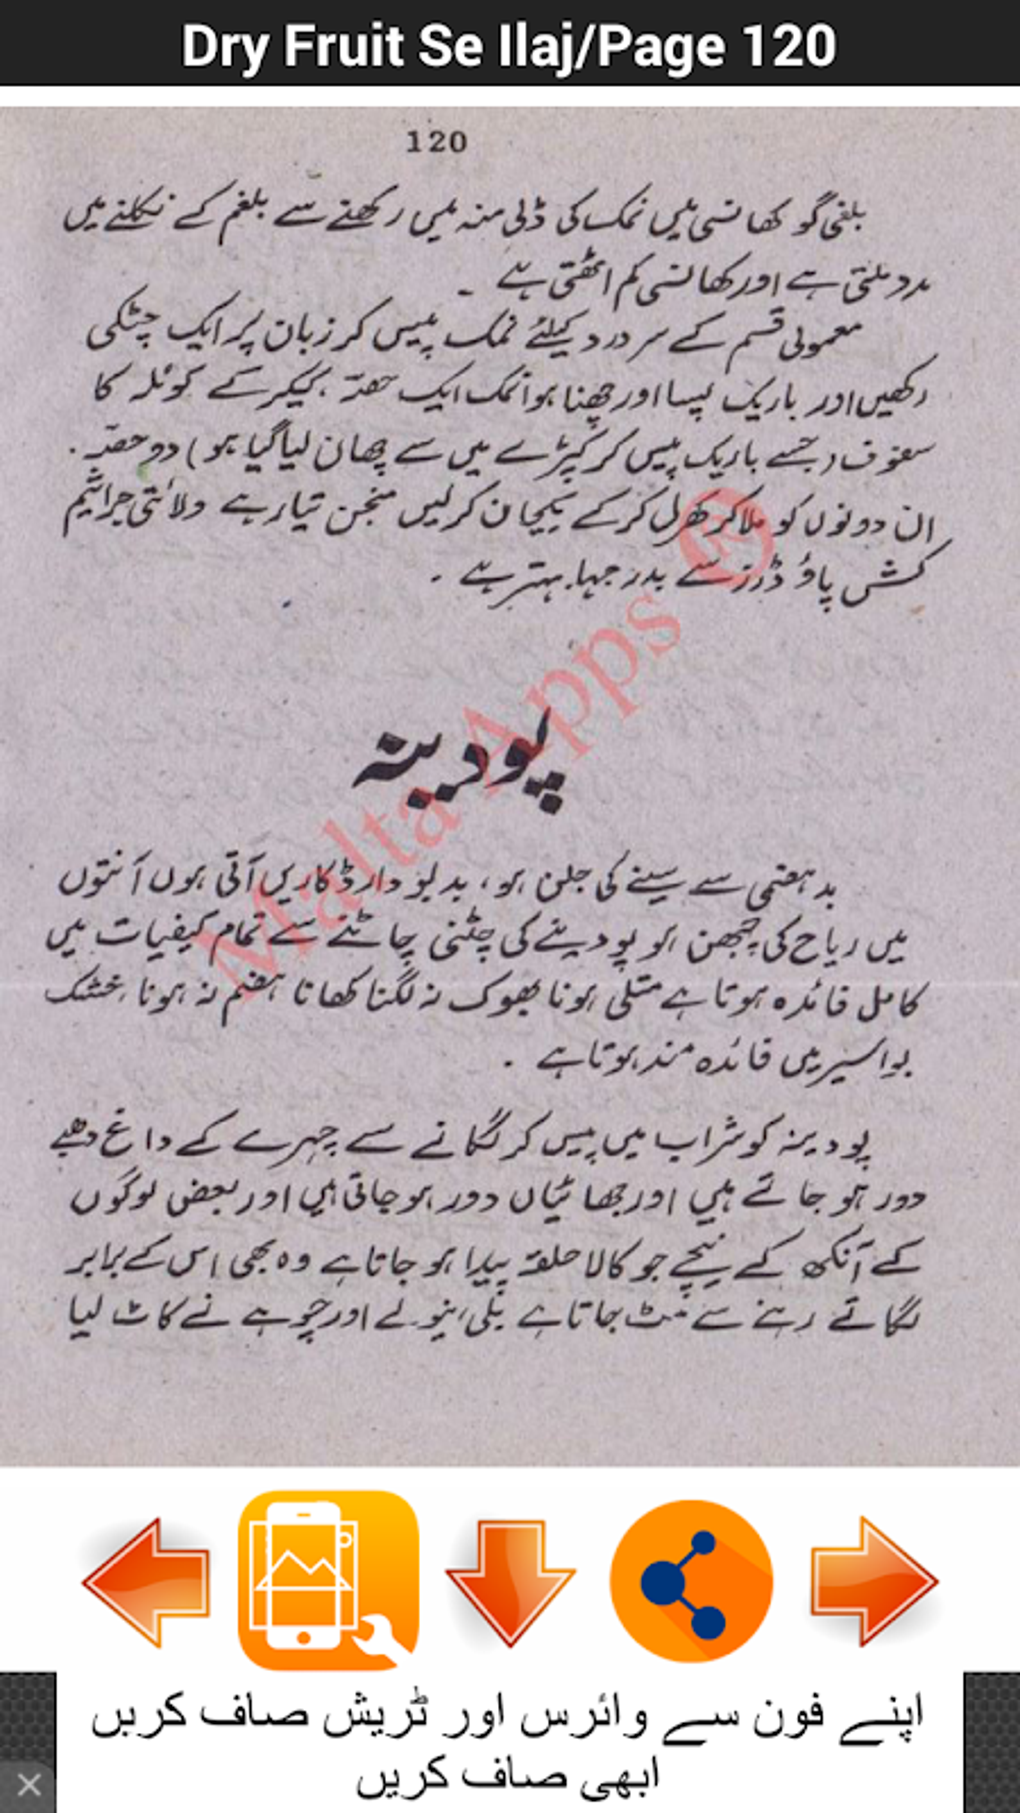 Dry Fruit Se Ilaj/Page 120
120
بلغمی کھانسی میں نمک کی ڈلی منہ میں رکھنے سے بلغم کے نکلنے میں
مدد ملتی ہے اور کھانسی کم اٹھتی ہے ۔
معمولی قسم کے سر درد کیلئے نمک پیس کر زبان پر ایک چٹکی
رکھیں اور باریک پسا اور چھنا ہوا نمک ایک حصّہ ، کیکر کے کوئلہ کا
سفوف (جسے باریک پیس کر کپڑے میں سے چھان لیا گیا ہو) دو حصّہ .
ان دونوں کو ملا کر کھرل کر کے یکجان کر لیں منجن تیار ہے ولائتی جراثیم
کش پاؤڈرز سے بدرجہا بہتر ہے ۔
پودینہ
بدہضمی سے سینے کی جلن ہو ، بدبو دار ڈکاریں آتی ہوں آنتوں
میں ریاح کی چبھن ہو پودینے کی چٹنی چاٹنے سے تمام کیفیات میں
کامل فائدہ ہوتا ہے متلی ہونا بھوک نہ لگنا کھانا ہضم نہ ہونا ، خشک
بواسیر میں فائدہ مند ہوتا ہے ۔
پودینہ کو شراب میں پیس کر لگانے سے چہرے کے داغ دھبے
دور ہو جاتے ہیں اور جھائیاں دور ہو جاتی ہیں اور بعض لوگوں
کے آنکھ کے نیچے جو کالا حلقہ پیدا ہو جاتا ہے وہ بھی اس کے برابر
لگاتے رہنے سے مٹ جاتا ہے بلی، نیولے اور چوہے نے کاٹ لیا
Malta Apps ®
اپنے فون سے وائرس اور ٹریش صاف کریں
ابھی صاف کریں